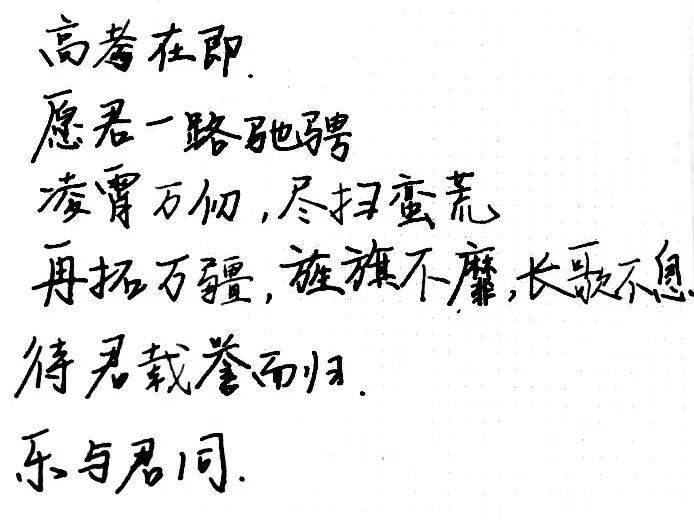 高考在即.
愿君一路驰骋
凌霄万仞,尽扫蛮荒
再拓万疆,旌旗不靡,长歌不息.
待君载誉而归.
乐与君同.